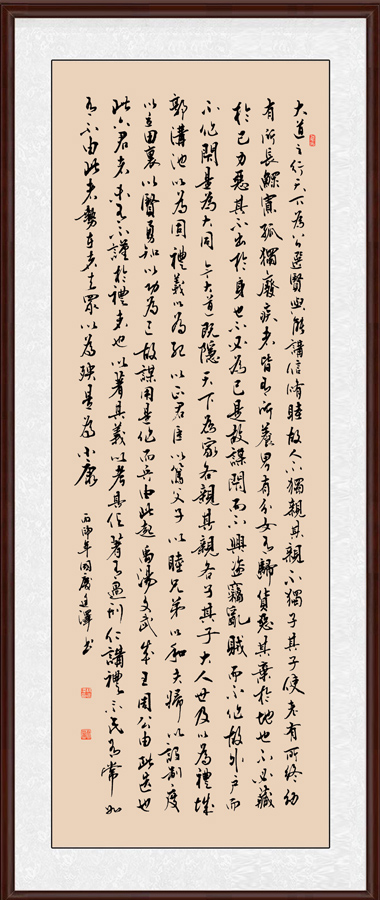 大道之行天下為公選賢與能講信脩睦故人不獨親其親不獨子其子使老有所終幼
有所長鰥寡孤獨廢疾者皆有所養男有分女有歸貨惡其棄於地也不必藏
於己力惡其不出於身也不必為己是故謀閉而不興盜竊亂賊而不作故外戶而
不作閉是為大同今大道既隱天下為家各親其親各子其子大人世及以為禮城
郭溝池以為固禮義以為紀以正君臣以篤父子以睦兄弟以和夫婦以設制度
以立田裏以賢勇知以功為己故謀用是作而兵由此起禹湯文武成王周公由此選也
此六君者未有不謹於禮者也以著其義以考其信著有過刑仁講禮示民有常如
有不由此者勢在者去眾以為殃是為小康
丙申年國慶廷澤書